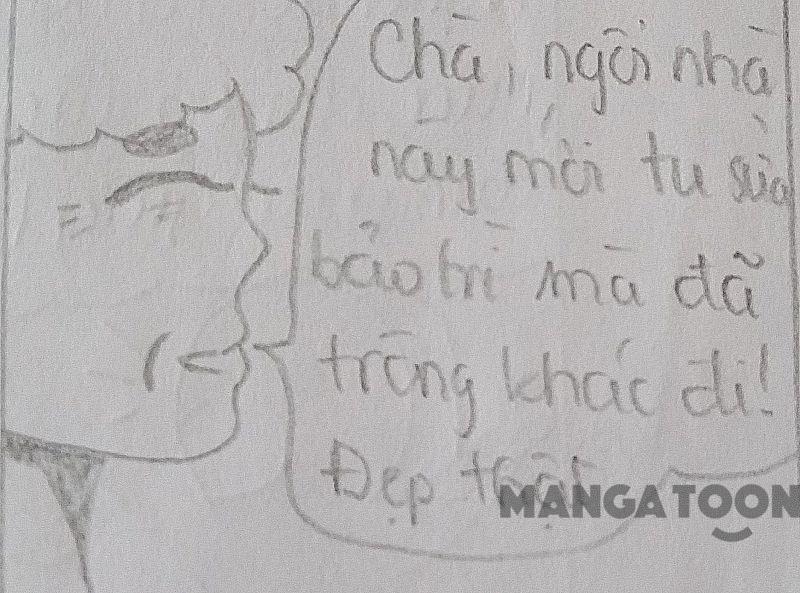 Chà, ngôi nhà
này mới tu sửa
bảo trì mà đã
trông khác đi!
Đẹp thật
MANGATOON